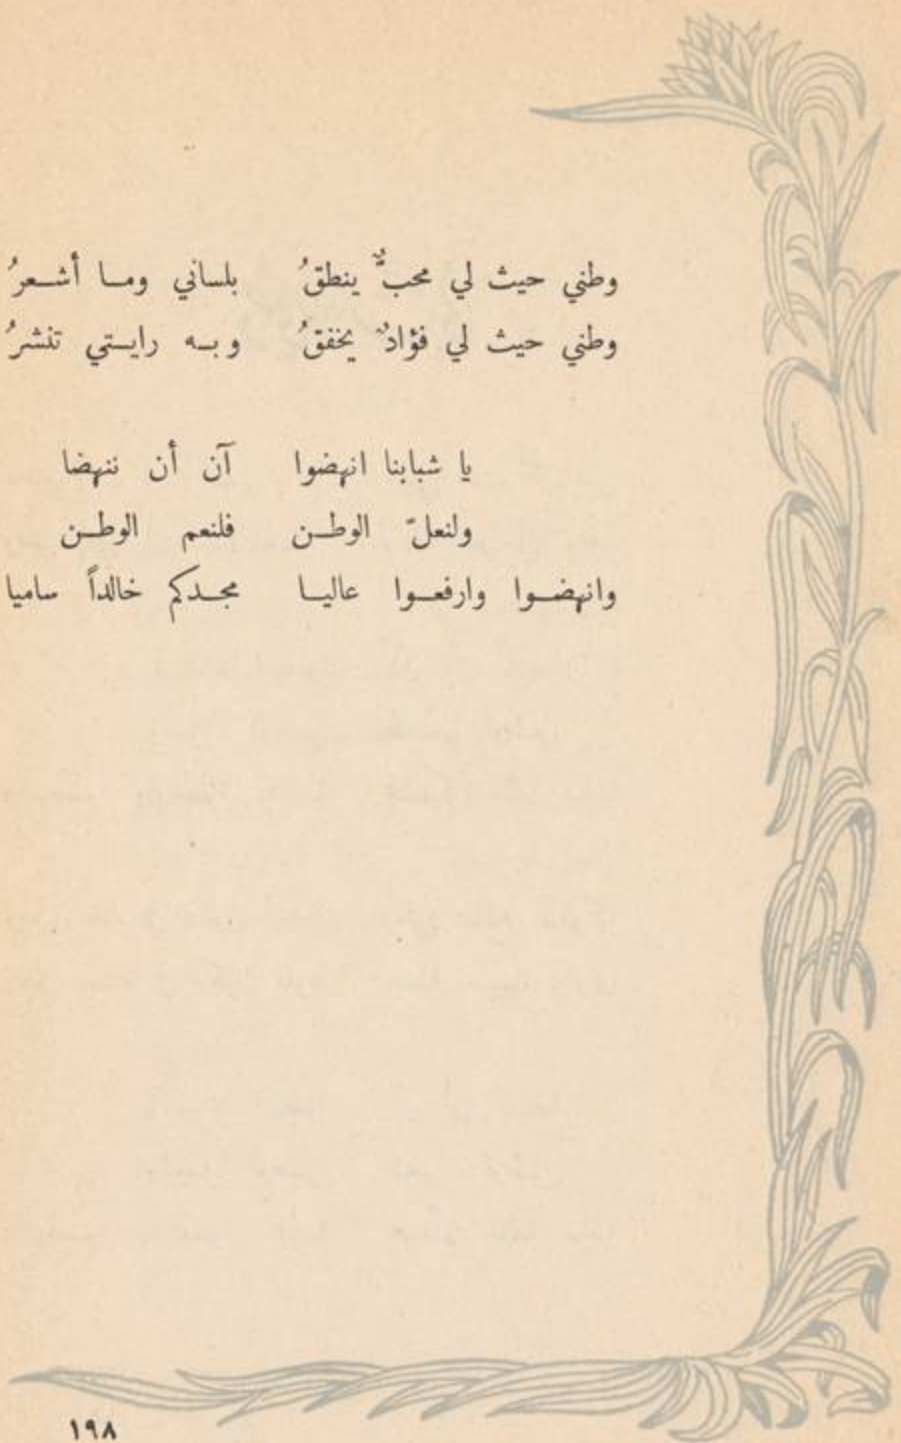 وطني حيث لي محبٌّ ينطقُ بلساني وما أشعرُ
وطني حيث لي فؤادٌ يخفقُ وبه رايتي تنشرُ
يا شبابنا انهضوا آن أن ننهضا
ولنعلّ الوطن فلنعم الوطن
وانهضوا وارفعوا عاليا مجدكم خالداً ساميا
١٩٨